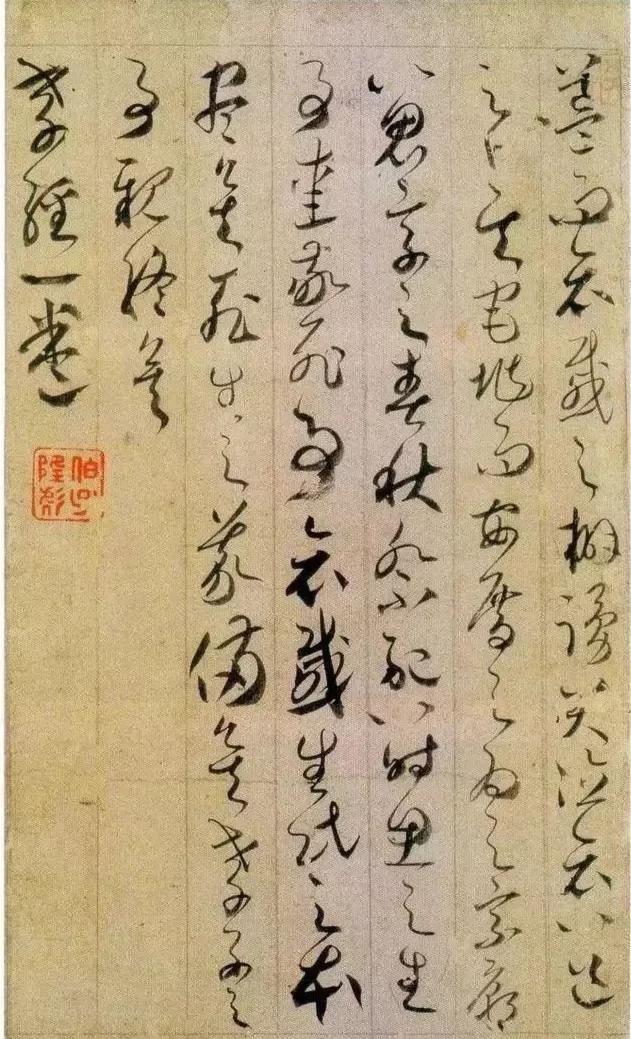 簋而哀慼之擗踴哭泣哀以送
之卜其宅兆而安厝之為之宗廟
以鬼享之春秋祭祀以時思之生
事愛敬死事哀慼生民之本
盡矣死生之義備矣孝子之
事親終矣
孝經一卷